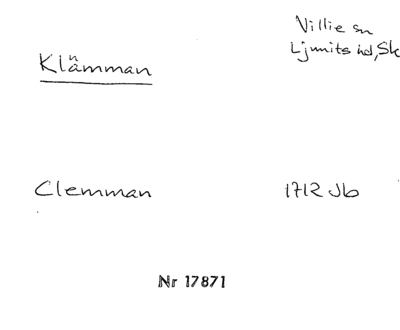 Villie sn
Ljunits hd, Sk
Klämman
Clemman 1712 Jb
Nr 17871